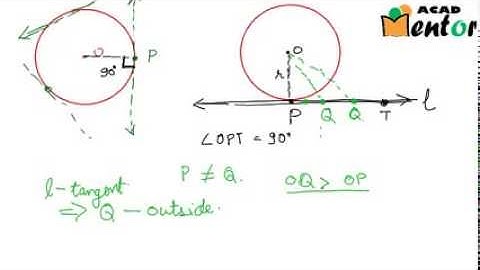 ACAD
Mentor
O
P
90°
O
r
P Q Q T l
∠OPT = 90°
P ≠ Q.
OQ > OP
l - tangent
⇒ Q — outside.